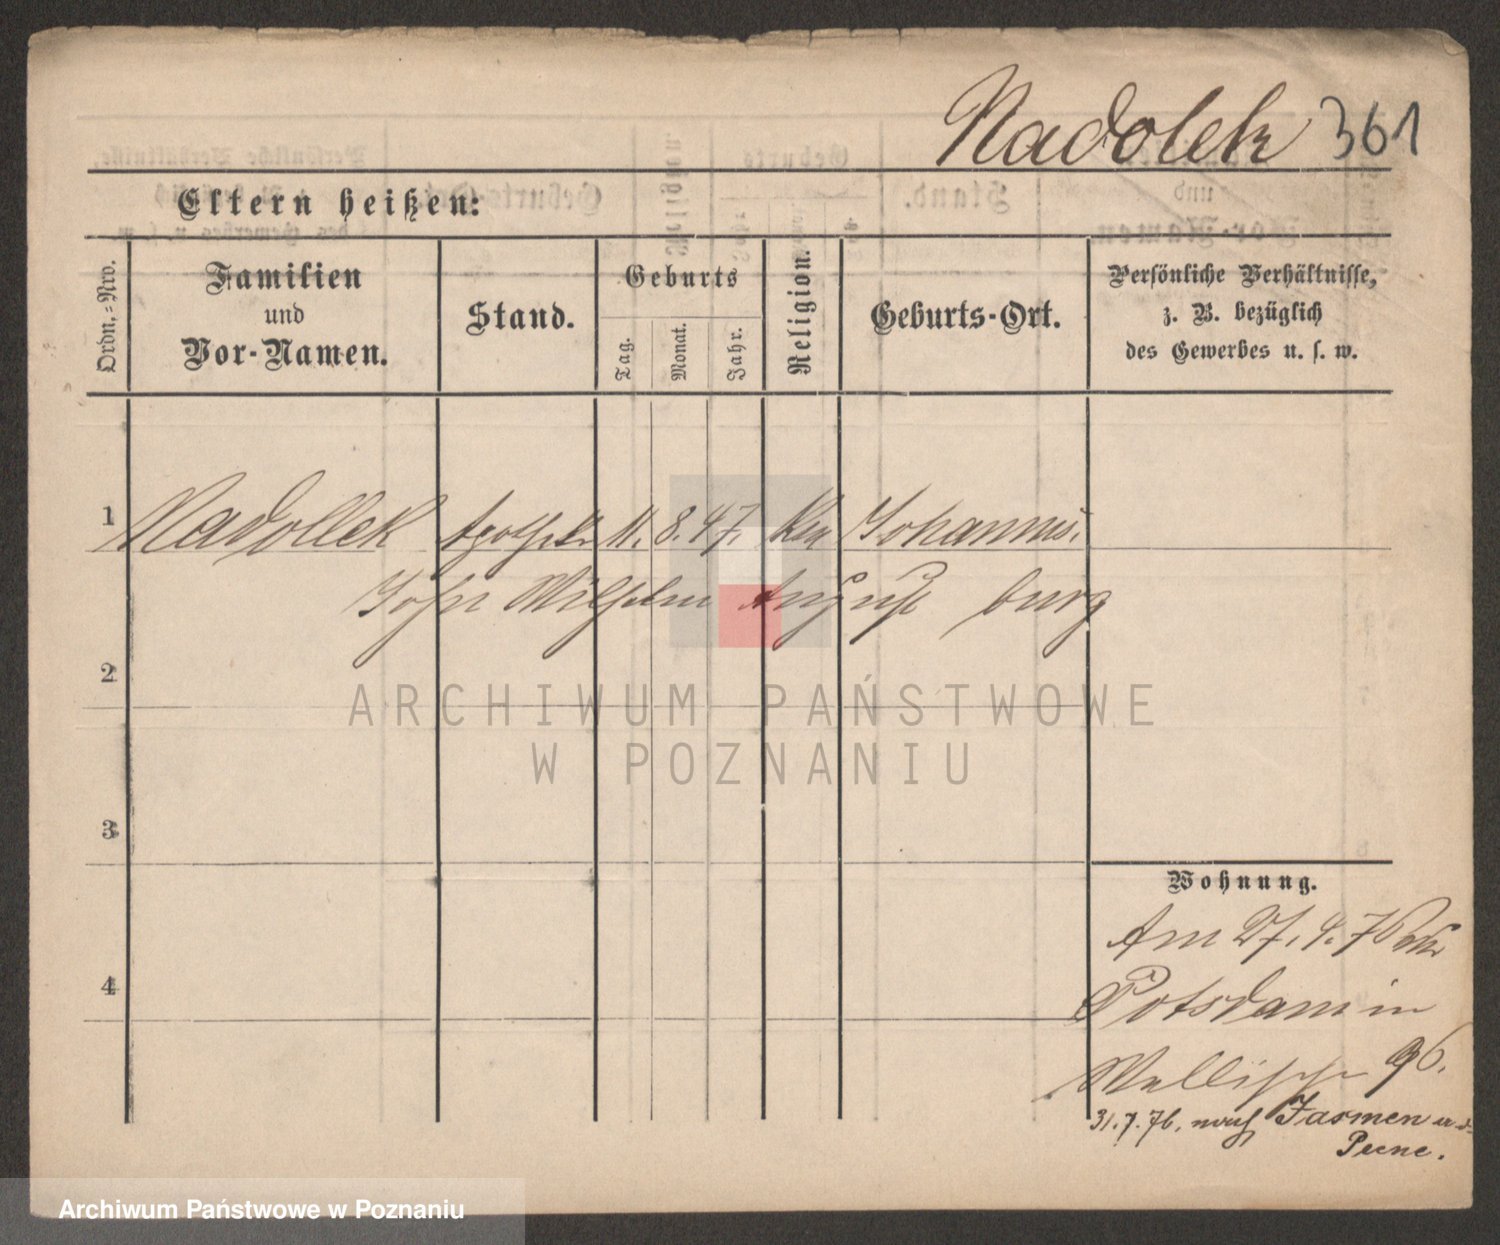 Nadolek 361
Eltern heißen:
Ordn.-Nro.
Familien
und
Vor-Namen.
Stand.
Geburts
Tag.
Monat.
Jahr.
Religion.
Geburts-Ort.
Persönliche Verhältnisse,
z. B. bezüglich
des Gewerbes u. s. w.
1 Nadollek 11. 8. 47. Johannis.
John Wilhelm August burg
2
3
4
Wohnung.
Am 27. 4. 76
Potsdam in
Wallischei 96.
31. 7. 76. nach Jarmen a. d.
Peene.
ARCHIWUM PAŃSTWOWE
W POZNANIU
Archiwum Państwowe w Poznaniu